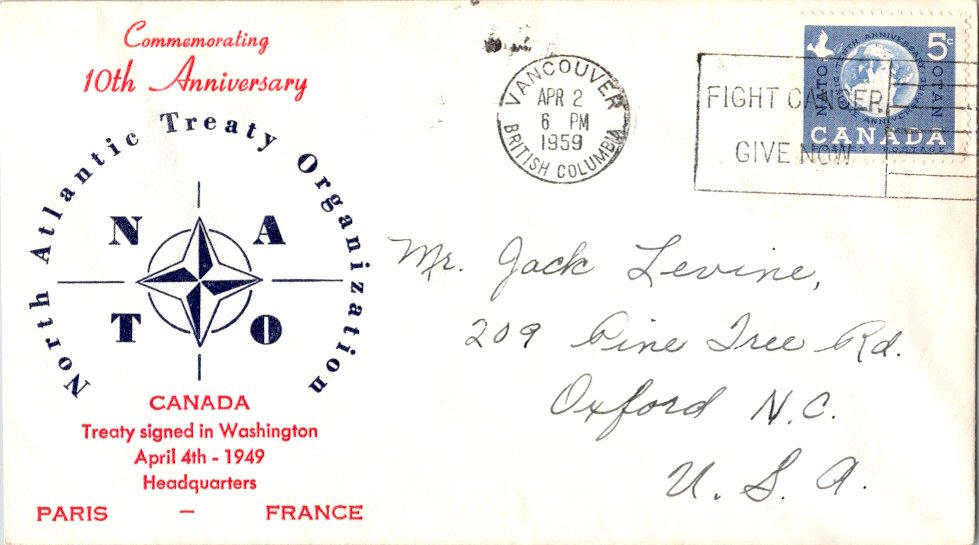 Commemorating
10th Anniversary
North Atlantic Treaty Organization
N A
T O
CANADA
Treaty signed in Washington
April 4th - 1949
Headquarters
PARIS – FRANCE
VANCOUVER
APR 2
6 PM
1959
BRITISH COLUMBIA
FIGHT CANCER
GIVE NOW
5c
NATO
OTAN
CANADA
POSTAGE
Mr. Jack Levine,
209 Pine Tree Rd.
Oxford N.C.
U. S. A.